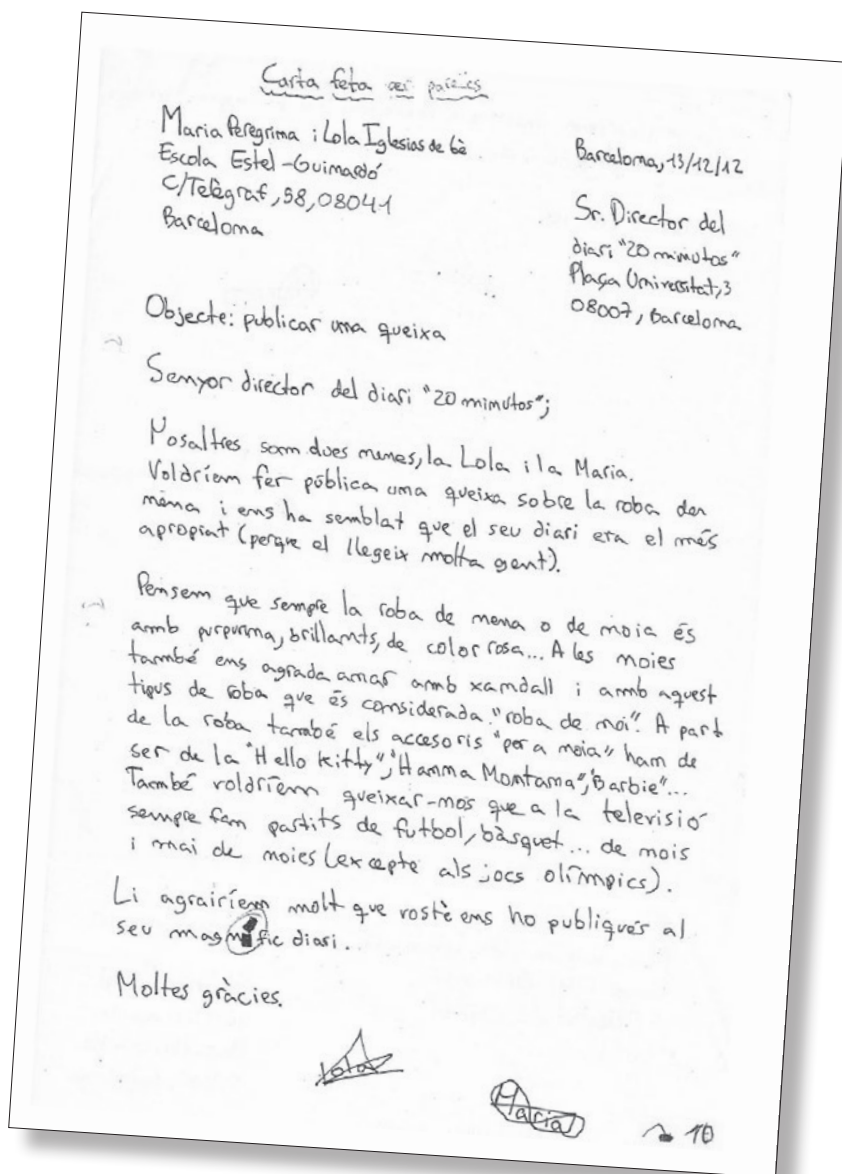 Carta feta per parelles
Maria Peregrina i Lola Iglesias de 6è
Escola Estel-Guinardó
C/Telègraf, 58, 08041
Barcelona
Barcelona, 13/12/12
Sr. Director del
diari "20 minutos"
Plaça Universitat, 3
08007, Barcelona
Objecte: publicar una queixa
Senyor director del diari "20 minutos";
Nosaltres som dues nenes, la Lola i la Maria.
Voldríem fer pública una queixa sobre la roba den
nena i ens ha semblat que el seu diari era el més
apropiat (perque el llegeix molta gent).
Pensem que sempre la roba de nena o de noia és
amb purpurina, brillants, de color rosa... A les noies
també ens agrada anar amb xandall i amb aquest
tipus de roba que és considerada "roba de noi". A part
de la roba també els accesoris "per a noia" han de
ser de la "Hello Kitty", "Hanna Montana", "Barbie"...
També voldríem queixar-nos que a la televisió
sempre fan partits de futbol, bàsquet... de nois
i mai de noies (excepte als jocs olímpics).
Li agrairíem molt que vostè ens ho publiqués al
seu magnífic diari.
Moltes gràcies.
Lola
Maria
10